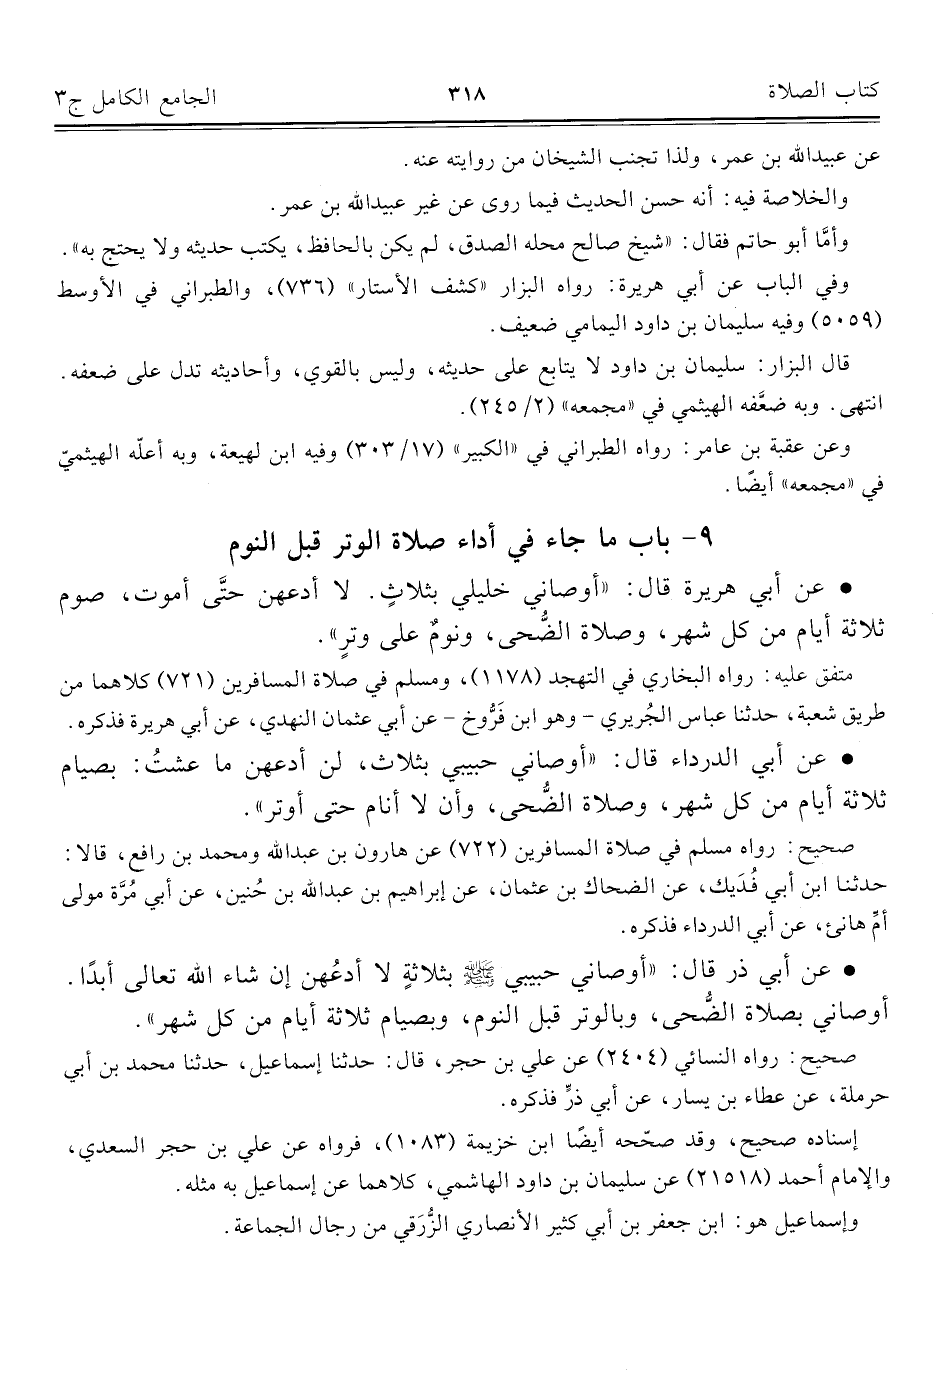 كتاب الصلاة ٣١٨ الجامع الكامل ج٣
عن عبيدالله بن عمر، ولذا تجنب الشيخان من روايته عنه.
والخلاصة فيه: أنه حسن الحديث فيما روى عن غير عبيدالله بن عمر.
وأمَّا أبو حاتم فقال: «شيخ صالح محله الصدق، لم يكن بالحافظ، يكتب حديثه ولا يحتج به».
وفي الباب عن أبي هريرة: رواه البزار «كشف الأستار» (٧٣٦)، والطبراني في الأوسط
(٥٠٥٩) وفيه سليمان بن داود اليمامي ضعيف.
قال البزار: سليمان بن داود لا يتابع على حديثه، وليس بالقوي، وأحاديثه تدل على ضعفه.
انتهى. وبه ضعَّفه الهيثمي في «مجمعه» (٢/ ٢٤٥).
وعن عقبة بن عامر: رواه الطبراني في «الكبير» (١٧/ ٣٠٣) وفيه ابن لهيعة، وبه أعلّه الهيثميّ
في «مجمعه» أيضًا.
٩- باب ما جاء في أداء صلاة الوتر قبل النوم
• عن أبي هريرة قال: «أوصاني خليلي بثلاثٍ. لا أدعهن حتَّى أموت، صوم
ثلاثة أيام من كل شهر، وصلاة الضُّحى، ونومٌ على وترٍ».
متفق عليه: رواه البخاري في التهجد (١١٧٨)، ومسلم في صلاة المسافرين (٧٢١) كلاهما من
طريق شعبة، حدثنا عباس الجُريري - وهو ابن فَرُّوخ - عن أبي عثمان النهدي، عن أبي هريرة فذكره.
• عن أبي الدرداء قال: «أوصاني حبيبي بثلاث، لن أدعهن ما عشتُ: بصيام
ثلاثة أيام من كل شهر، وصلاة الضُّحى، وأن لا أنام حتى أوتر».
صحيح: رواه مسلم في صلاة المسافرين (٧٢٢) عن هارون بن عبدالله ومحمد بن رافع، قالا:
حدثنا ابن أبي فُدَيك، عن الضحاك بن عثمان، عن إبراهيم بن عبدالله بن حُنين، عن أبي مُرَّة مولى
أمِّ هانئ، عن أبي الدرداء فذكره.
• عن أبي ذر قال: «أوصاني حبيبي ﷺ بثلاثةٍ لا أدعُهن إن شاء الله تعالى أبدًا.
أوصاني بصلاة الضُّحى، وبالوتر قبل النوم، وبصيام ثلاثة أيام من كل شهر».
صحيح: رواه النسائي (٢٤٠٤) عن علي بن حجر، قال: حدثنا إسماعيل، حدثنا محمد بن أبي
حرملة، عن عطاء بن يسار، عن أبي ذرٍّ فذكره.
إسناده صحيح، وقد صحّحه أيضًا ابن خزيمة (١٠٨٣)، فرواه عن علي بن حجر السعدي،
والإمام أحمد (٢١٥١٨) عن سليمان بن داود الهاشمي، كلاهما عن إسماعيل به مثله.
وإسماعيل هو: ابن جعفر بن أبي كثير الأنصاري الزُّرَقي من رجال الجماعة.